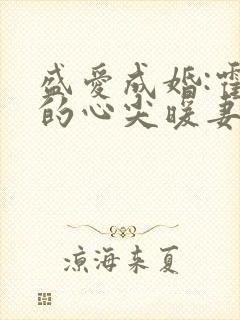 盛爱成婚:霍
的心尖暖妻
凉海来夏